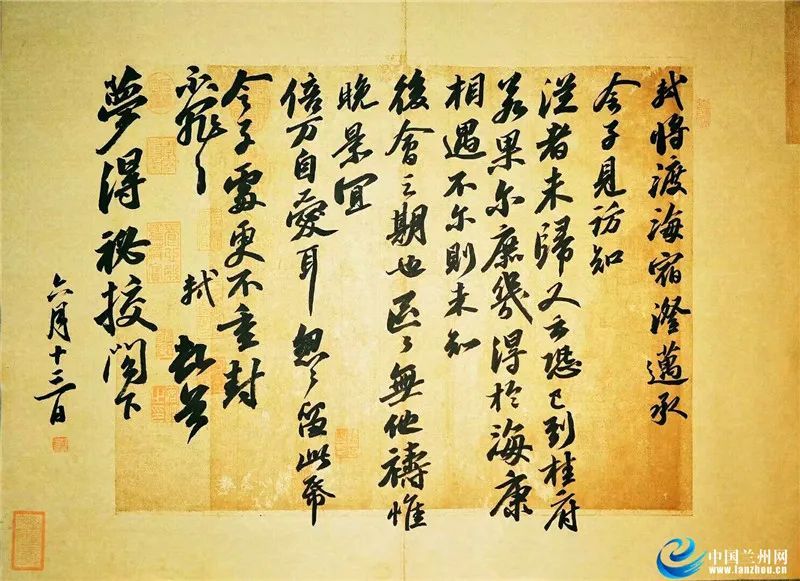 軾將渡海宿澄邁承
令子見訪知
從者未歸又云恐已到桂府
若果尔庶幾得於海康
相遇不尔則未知
後會之期也區々無他禱惟
晚景宜
倍万自愛耳忽々留此帋
令子處更不重封
不罪々 軾頓首
夢得祕挍閣下
六月十三日
中国兰州网
www.lanzhou.cn